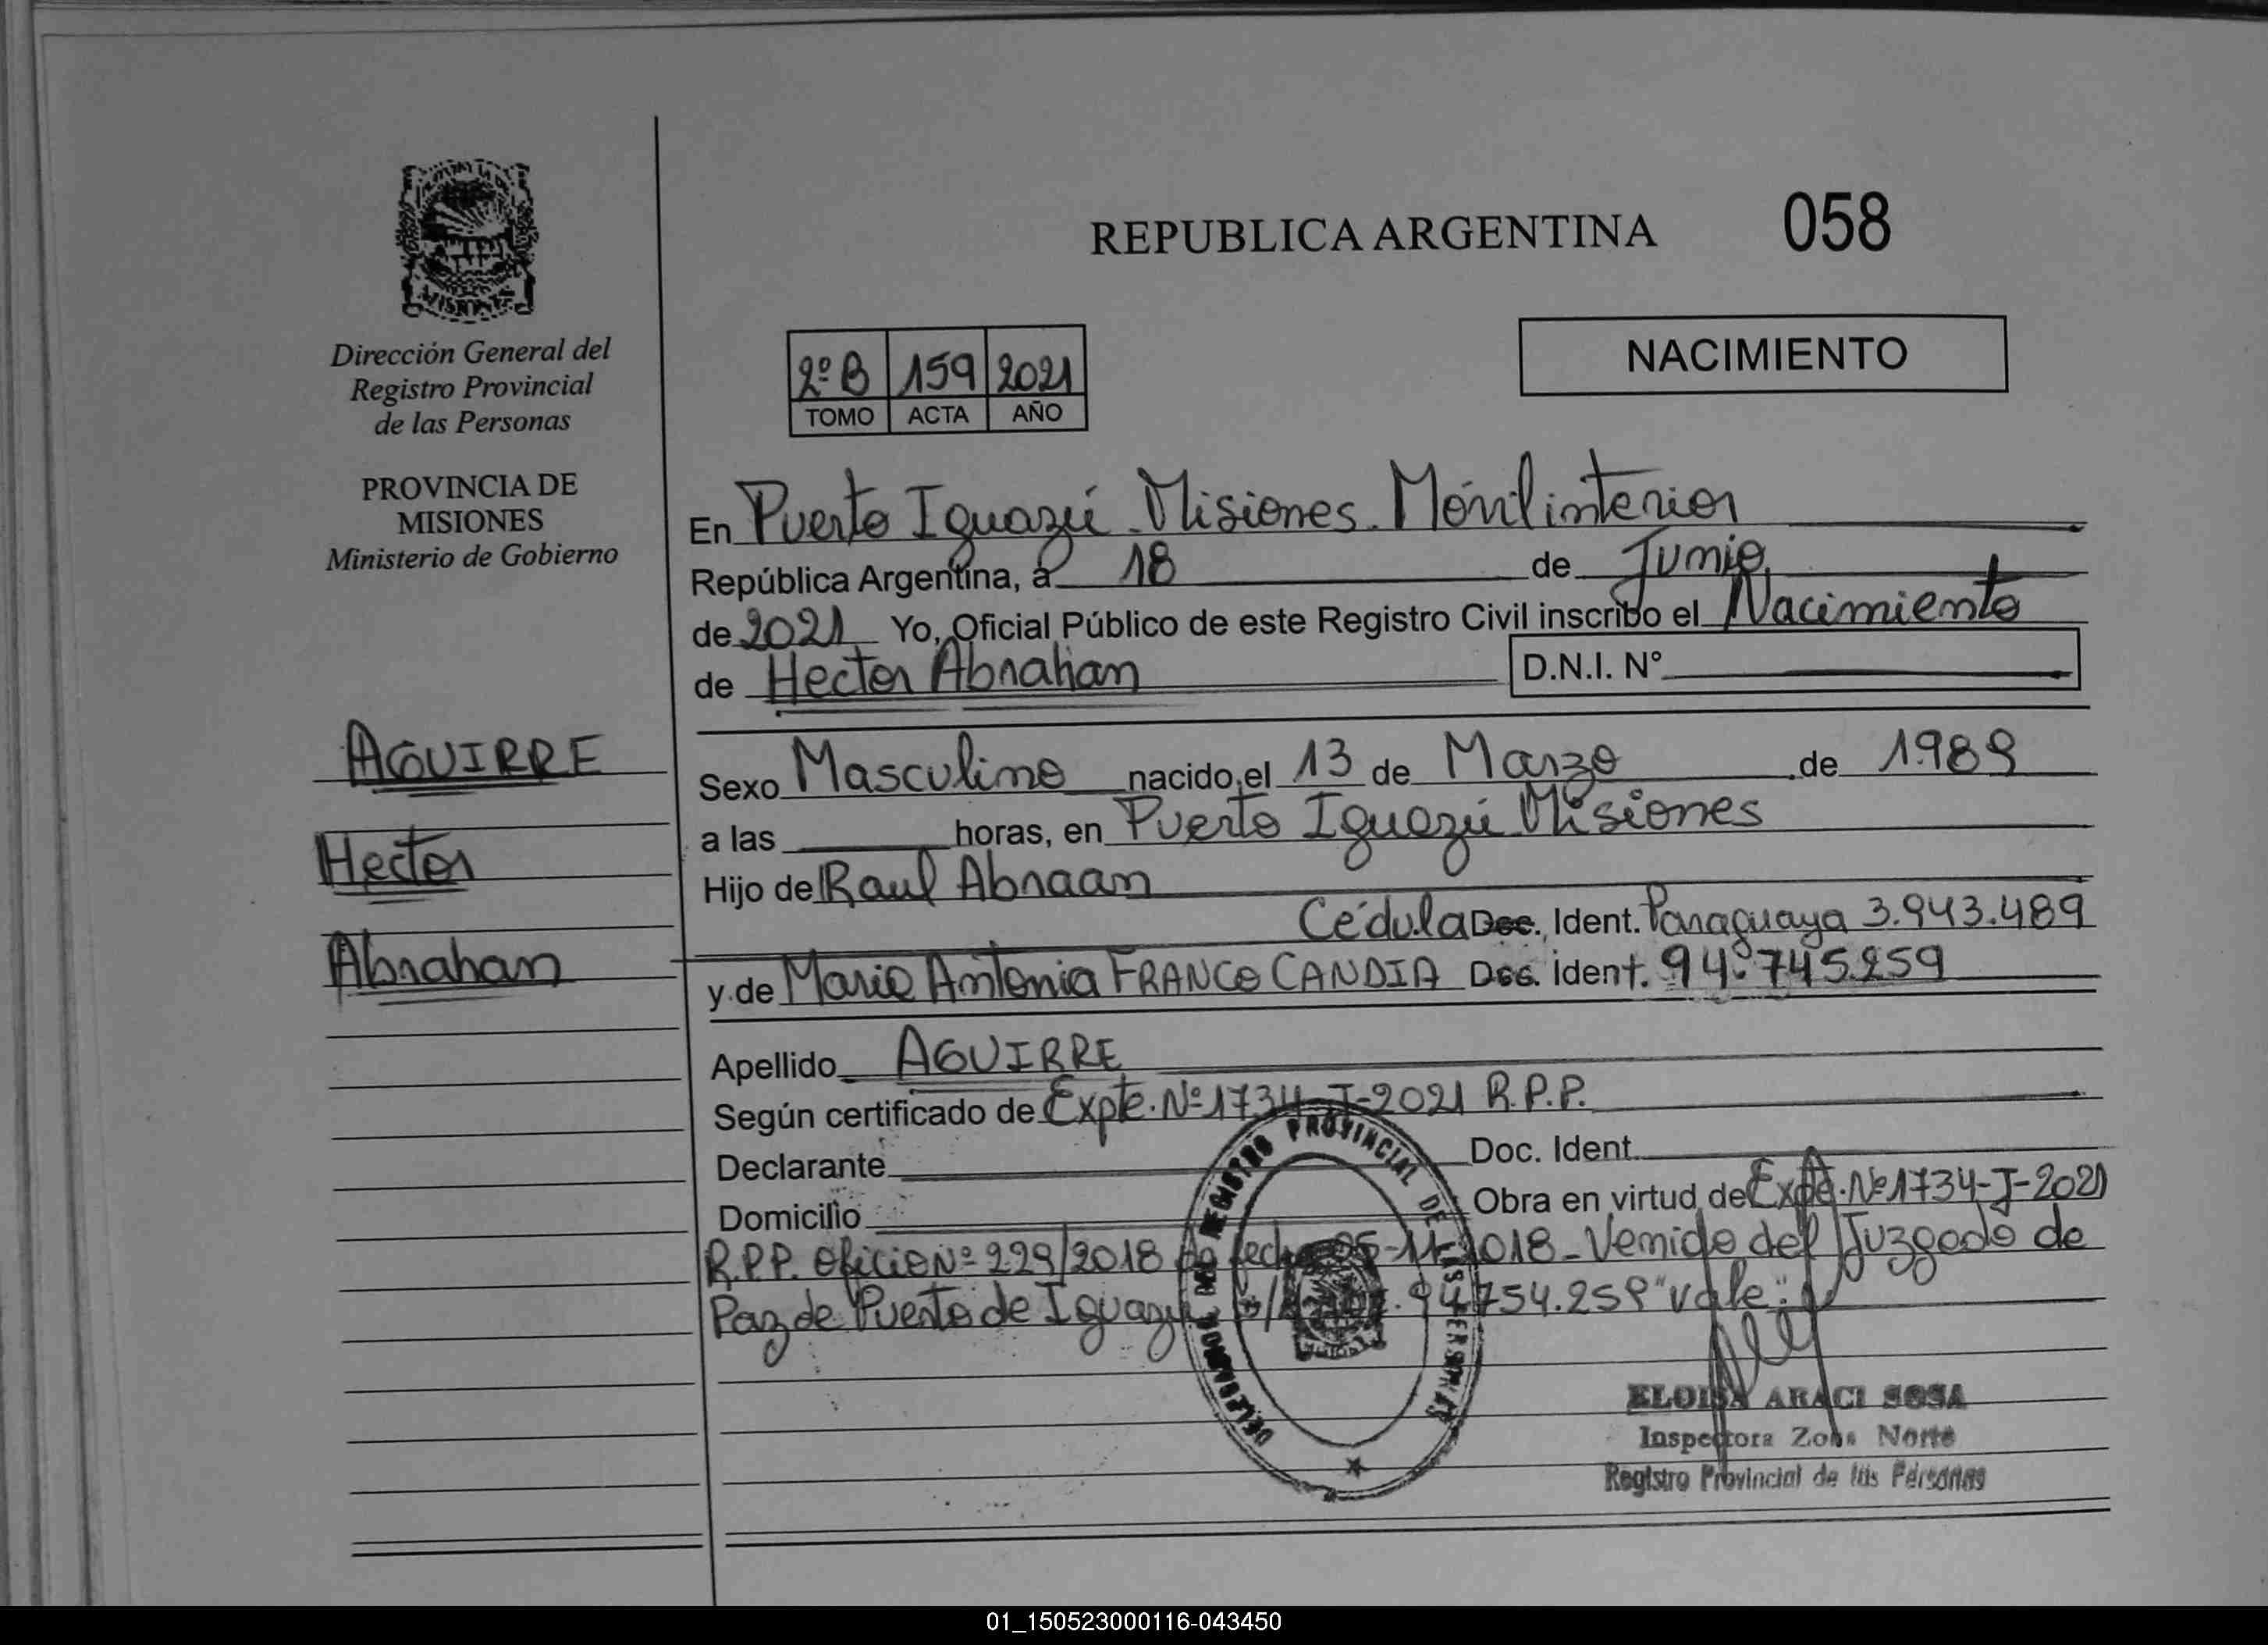 REPUBLICA ARGENTINA 058
Dirección General del
Registro Provincial
de las Personas
PROVINCIA DE
MISIONES
Ministerio de Gobierno
AGUIRRE
Hector
Abrahan
NACIMIENTO
2º B 159 2021
TOMO ACTA AÑO
En Puerto Iguazú Misiones. Móvil interior
República Argentina, a 18 de Junio
de 2021 Yo, Oficial Público de este Registro Civil inscribo el Nacimiento
de Hector Abrahan D.N.I. N°
Sexo Masculino nacido el 13 de Marzo de 1.989
a las horas, en Puerto Iguazú Misiones
Hijo de Raul Abraam
Cédula Doc. Ident. Paraguaya 3.943.489
y de Maria Antonia FRANCO CANDIA Doc. ident. 94.745.259
Apellido AGUIRRE
Según certificado de Expte. Nº 1734-J-2021 R.P.P.
Declarante Doc. Ident.
Domicilio Obra en virtud de Expte. Nº 1734-J-2021
R.P.P. Oficio Nº 229/2018 de fecha 05-11-2018 - Venido del Juzgado de
Paz de Puerto de Iguazú 94.754.259 "vale"
REGISTRO PROVINCIAL DE LAS PERSONAS
ELOISA ARACI SOSA
Inspectora Zona Norte
Registro Provincial de las Personas
01_150523000116-043450